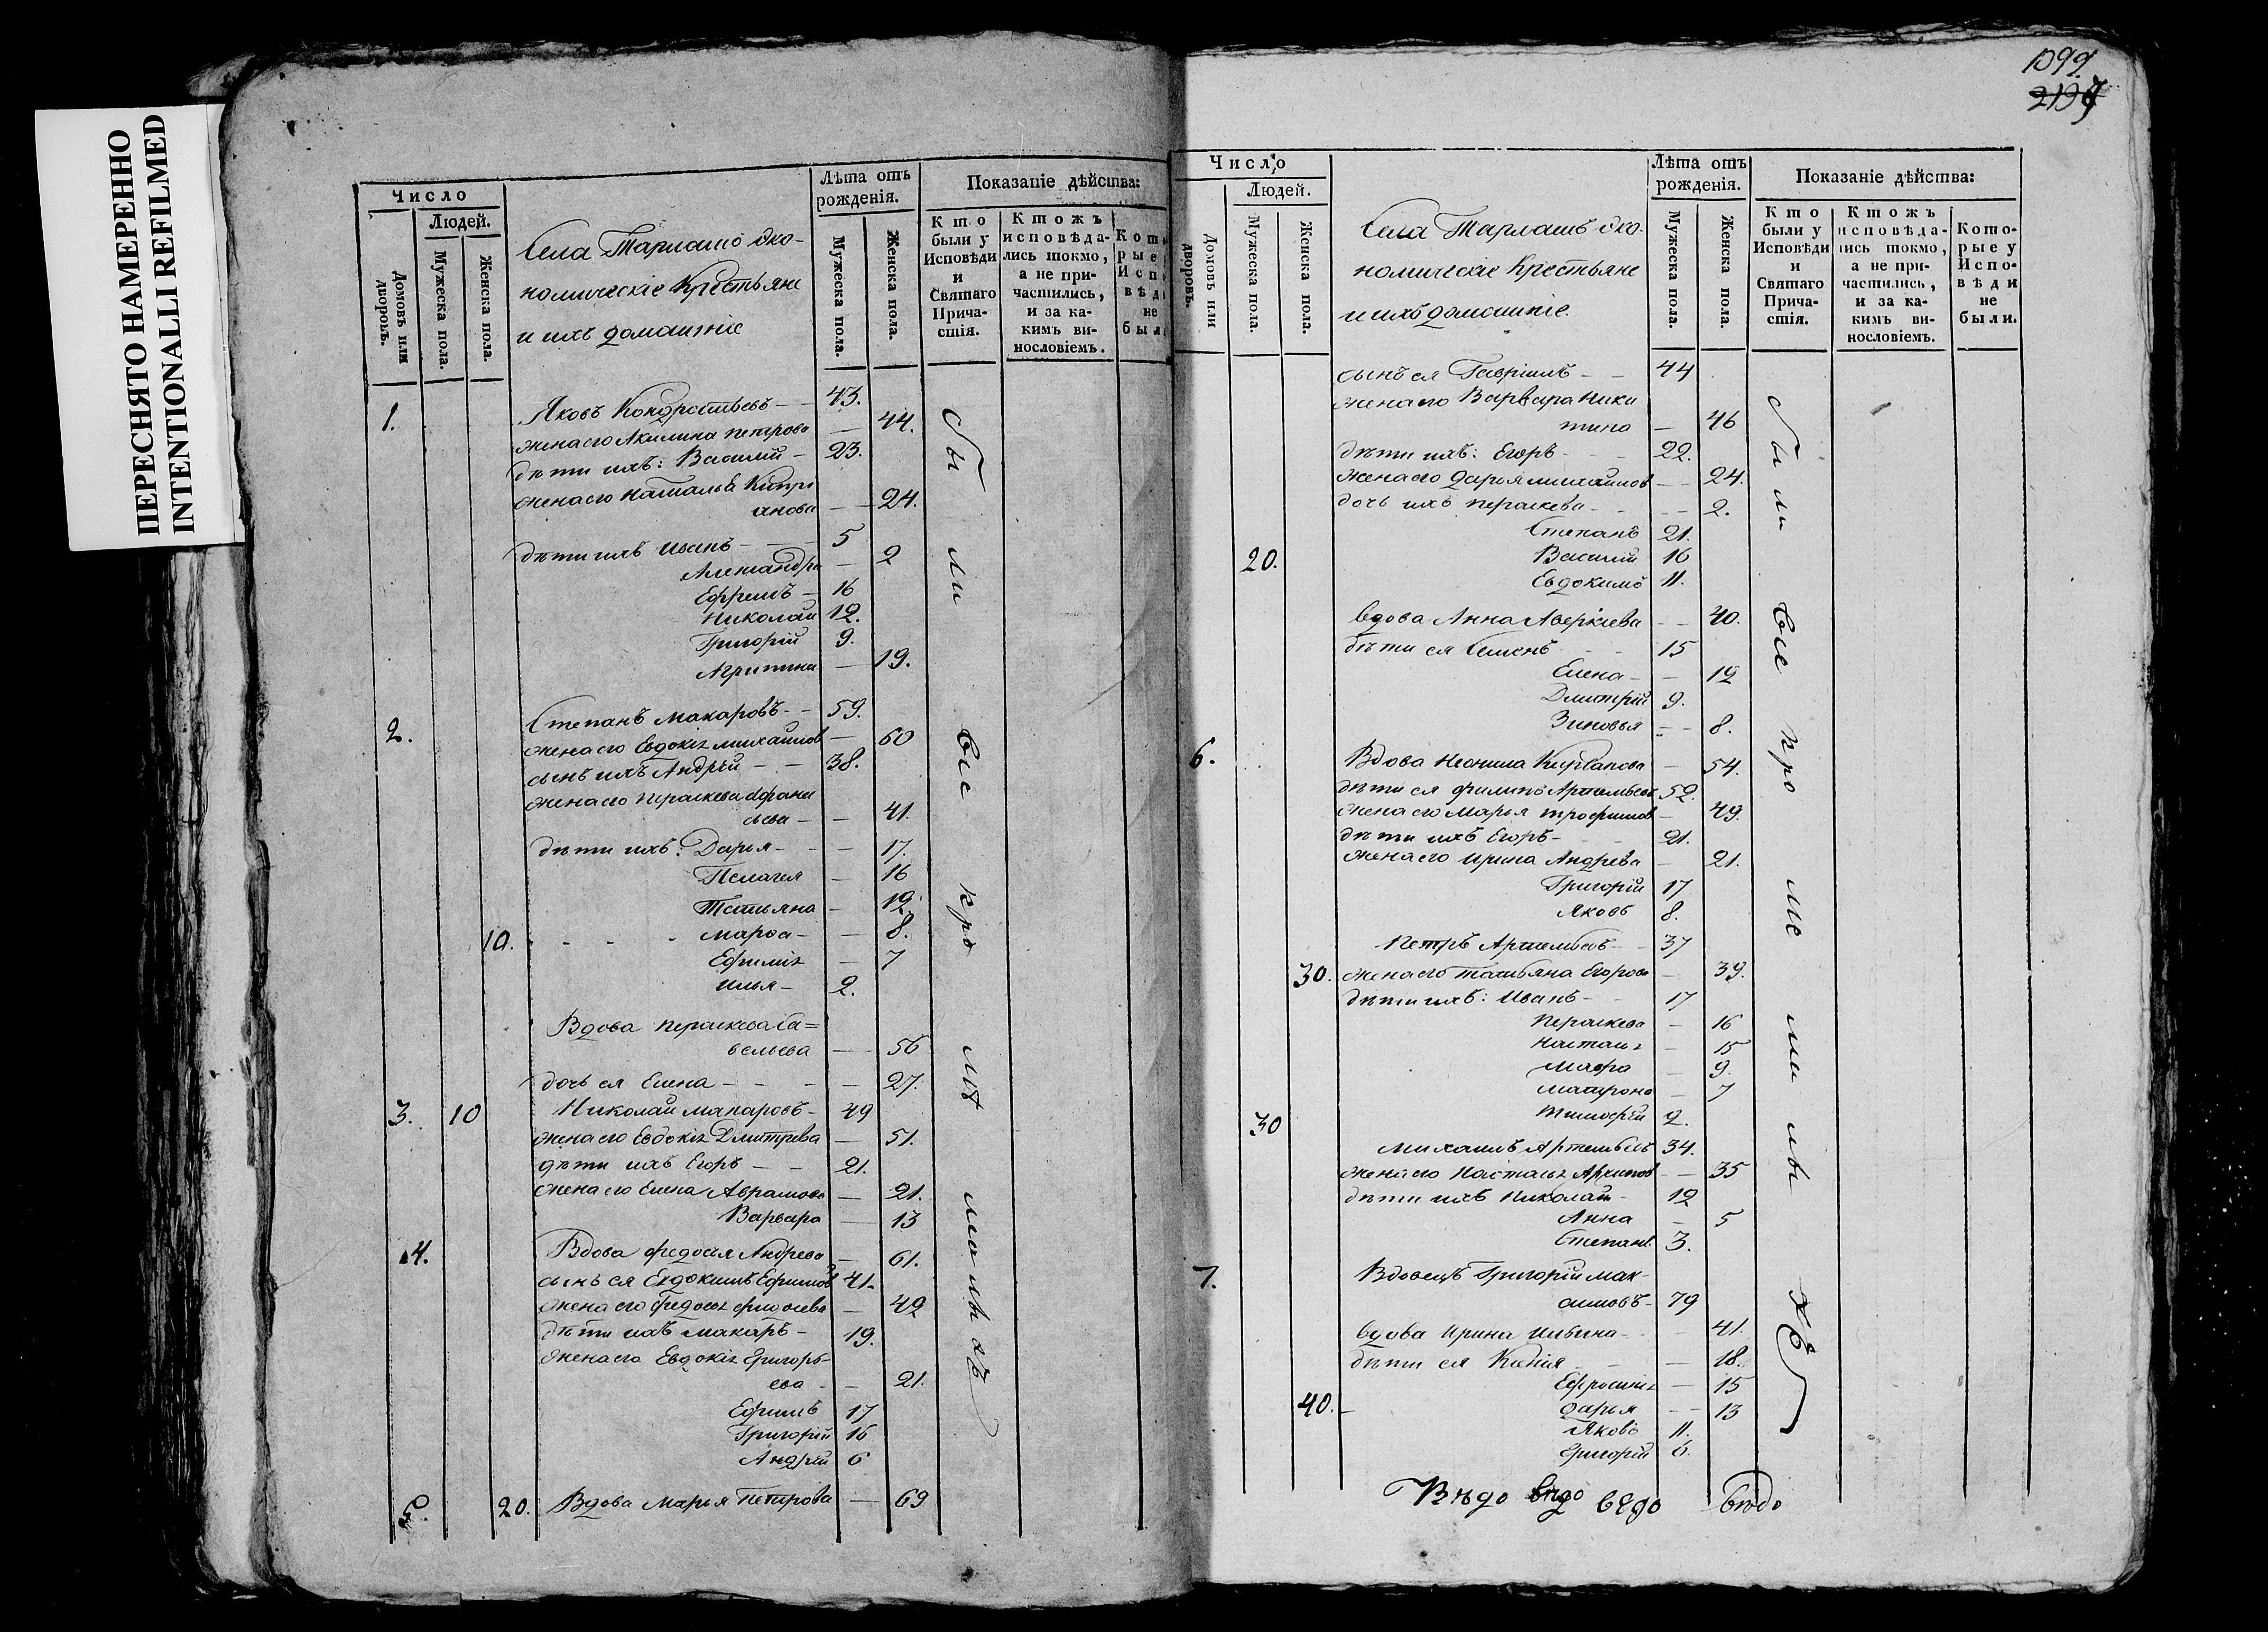 ПЕРЕСНЯТО НАМЕРЕННО
INTENTIONALLI REFILMED
Число
Людей.
Домовъ или дворовъ.
Мужеска пола.
Женска пола.
Села Тарлашъ эко-
номическіе Крестьяне
и ихъ домашніе
Лѣта отъ рожденія.
Мужеска пола.
Женска пола.
Показаніе дѣйства:
Кто были у Исповѣди и Святаго Прича-стія.
Ктожъ исповѣда-лись токмо, а не при-частились, и за ка-кимъ ви-нословіемъ.
1. Яковъ Кондратьевъ — 43.
жена его Акилина Петрова — 44.
дѣти ихъ: Василий — 23.
жена его Наталья Кипри
анова — 24.
дѣти ихъ Иванъ — 5
Александра — 2
Ефремъ — 16
Николай 12.
Григорій 9.
Агрипина — 19.
2. Степанъ Макаровъ — 59.
жена его Евдокія Михайлов — 60
сынъ ихъ Андрей — 38.
жена его Параскева Афана
сьева — 41.
дѣти ихъ: Дарья — 17.
Пелагея — 16
Татьяна — 12.
10. Марфа — 8.
Ефимія — 7
Илья — 2.
Вдова Параскева Са=
вельева — 56
дочь ея Елена — 27.
3. 10 Николай Макаровъ — 49
жена его Евдокія Дмитрева — 51.
дѣти ихъ Егоръ — 21.
жена его Елена Аврамова — 21.
Варвара — 13
4. Вдова Федосья Андрева — 61.
сынъ ея Евдокимъ Ефимовъ 41.
жена его Федосья — 42
дѣти ихъ Макаръ — 19.
жена его Евдокія Григорь-
ева — 21.
Ефимъ 17
Григорій 16
Андрей 6
5. 20. Вдова Марья Петрова — 69
были все кро мѣ малыхъ
1099
Число
Людей.
Домовъ или дворовъ.
Мужеска пола.
Женска пола.
Села Тарлашъ эко-
номическіе Крестьяне
и ихъ домашніе.
Лѣта отъ рожденія.
Мужеска пола.
Женска пола.
Показаніе дѣйства:
Кто были у Исповѣди и Святаго Прича-стія.
Ктожъ исповѣда-лись токмо, а не при-частились, и за ка-кимъ ви-нословіемъ.
Кото-рые у Испо-вѣди не были.
сынъ ея Гавріилъ — 44
жена его Варвара Ники
тина — 46
дѣти ихъ: Егоръ — 22.
жена его Дарья Михайлов — 24.
дочь ихъ Параскева — 2.
Степанъ 21.
20. Василий 16
Евдокимъ 11.
вдова Анна Аверкіева — 40.
дѣти ея Семенъ — 15
Елена — 12
Дмитрий 9.
Зиновья — 8.
6. Вдова Неонила — 54.
дѣти ея Филипъ Артемьевъ 52.
жена его Марья Трофимов — 49.
дѣти ихъ Егоръ — 21.
жена его Ирина Андрева — 21.
Григорій 17
Яковъ 8.
Петръ Артемьевъ — 37
30. жена его Татьяна Егорова — 39.
дѣти ихъ: Иванъ — 17
Параскева — 16
Настасья — 15
Мавра — 9.
Матрона — 7
30 Тимофей 2.
Михаилъ Артемьевъ 34.
жена его Настасья Архипов — 35
дѣти ихъ Николай — 12
Анна — 5
Степанъ 3.
7. Вдовецъ Григорій Мак-
симовъ — 79
вдова Ирина Ильина — 41.
дѣти ея Ксенія — 18.
Ефросинья — 15
40. Дарья — 13
Яковъ 11.
Григорій 6.
были все кро ме ма лы хъ
Вѣдо вѣдо вѣдо вѣдо